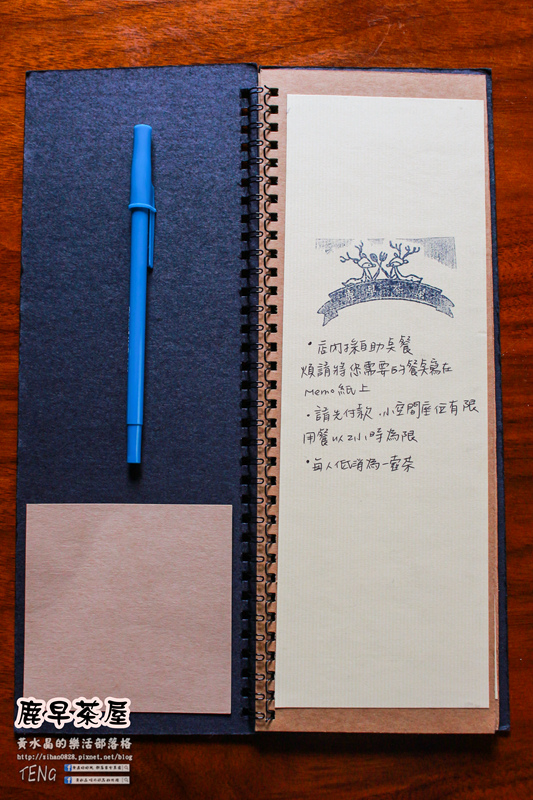 •店內採自助桌餐
煩請將您需要的餐桌寫在
Memo紙上
•請先付款.小空間座位有限
用餐以2小時為限
•每人低消為一壺茶
鹿早茶屋
黃水晶的樂活部落格
http://sihan0828.pixnet.net/blog
TENG